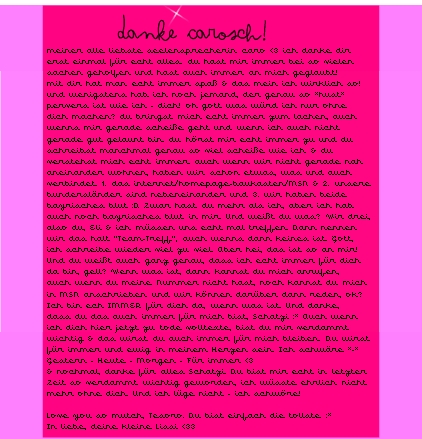 danke carosch!
meiner alle liebste seelensprecherin caro <3 ich danke dir
erst einmal für echt alles. du hast mir immer bei so vielen
sachen geholfen und hast auch immer an mich geglaubt!
mit dir hat man echt immer spaß & das mein ich wirklich so!
und wenigstens hab ich noch jemand, der genau so *hust*
pervers ist wie ich - dich! oh gott was würd ich nur ohne
dich machen? du bringst mich echt immer zum lachen, auch
wenns mir gerade scheiße geht und wenn ich auch nicht
gerade gut gelaunt bin. du hörst mir echt immer zu und du
schreibst manchmal genau so viel scheiße wie ich & du
verstehst mich echt immer. auch wenn wir nicht gerade nah
aneinander wohnen, haben wir schon etwas, was und auch
verbindet. 1. das internet/homepage-baukasten/MSN & 2. unsere
bundersländer sind nebeneinander und 2. wir haben beide
bayrisches blut :D Zwar hast du mehr als ich, aber ich hab
auch noch bayrisches blut in mir. Und weißt du was? Wir drei,
also du, Eli & ich müssen uns echt mal treffen. Dann nennen
wir das halt "Team-Treff", auch wenns dann keines ist. Gott,
ich schreibe wieder viel zu viel. Aber hei, das ist so an mir!
Und du weißt auch ganz genau, dass ich echt immer für dich
da bin, gell? Wenn was ist, dann kannst du mich anrufen,
auch wenn du meine Nummer nicht hast, noch kannst du mich
in MSN anschrieben und wir können darüber dann reden, ok?
Ich bin echt IMMER für dich da, wenn was ist. Und danke,
dass du das auch immer für mich bist, Schatzi :* Auch wenn
ich dich hier jetzt zu tode volltexte, bist du mir verdammt
wichtig & das wirst du auch immer für mich bleiben. Du wirst
für immer und ewig in meinem Herzen sein. Ich schwöre *-*
Gestern - Heute - Morgen - Für immer <3
& nochmal danke für alles Schatzi. Du bist mir echt in letzter
Zeit so verdammt wichtig geworden, ich wüsste ehrlich nicht
mehr ohne dich. Und ich lüge nicht - ich schwöre!
Love you so mutch, Tesoro. Du bist einfach die tollste :*
In liebe, deine kleine Lissi <33